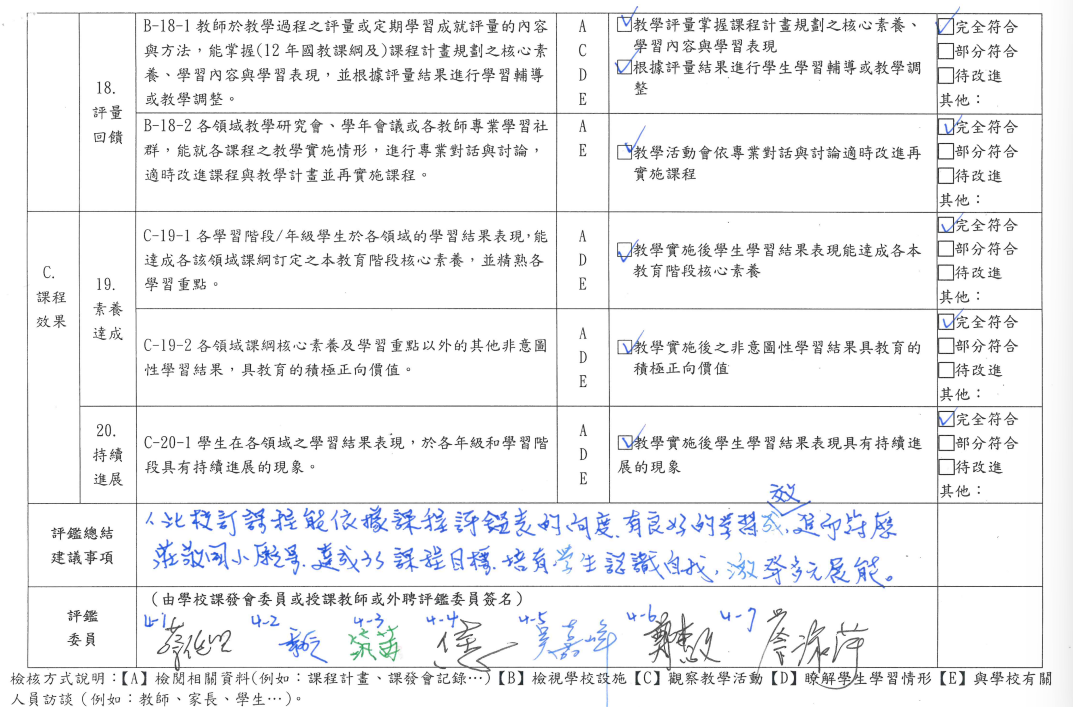 18.
評量
回饋
B-18-1 教師於教學過程之評量或定期學習成就評量的內容
與方法，能掌握(12 年國教課綱及)課程計畫規劃之核心素
養、學習內容與學習表現，並根據評量結果進行學習輔導
或教學調整。
A
C
D
E
教學評量掌握課程計畫規劃之核心素養、
學習內容與學習表現
根據評量結果進行學生學習輔導或教學調
整
完全符合
部分符合
待改進
其他：
B-18-2 各領域教學研究會、學年會議或各教師專業學習社
群，能就各課程之教學實施情形，進行專業對話與討論，
適時改進課程與教學計畫並再實施課程。
A
E
教學活動會依專業對話與討論適時改進再
實施課程
完全符合
部分符合
待改進
其他：
C.
課程
效果
19.
素養
達成
C-19-1 各學習階段/年級學生於各領域的學習結果表現，能
達成各該領域課綱訂定之本教育階段核心素養，並精熟各
學習重點。
A
D
E
教學實施後學生學習結果表現能達成各本
教育階段核心素養
完全符合
部分符合
待改進
其他：
C-19-2 各領域課綱核心素養及學習重點以外的其他非意圖
性學習結果，具教育的積極正向價值。
A
D
E
教學實施後之非意圖性學習結果具教育的
積極正向價值
完全符合
部分符合
待改進
其他：
20.
持續
進展
C-20-1 學生在各領域之學習結果表現，於各年級和學習階
段具有持續進展的現象。
A
D
E
教學實施後學生學習結果表現具有持續進
展的現象
完全符合
部分符合
待改進
其他：
評鑑總結
建議事項
效
此校訂課程能依據課程評鑑表的向度,有良好的學習成,進而符應
莊敬國小願景,達成 課程目標,培育學生認識自我,激發多元展能。
評鑑
委員
(由學校課發會委員或授課教師或外聘評鑑委員簽名)
4-1 4-2 4-3 4-4 4-5 4-6 4-7
吳嘉峰
檢核方式說明：【A】檢閱相關資料(例如：課程計畫、課發會記錄…)【B】檢視學校設施【C】觀察教學活動【D】瞭解學生學習情形【E】與學校有關
人員訪談 (例如：教師、家長、學生…)。